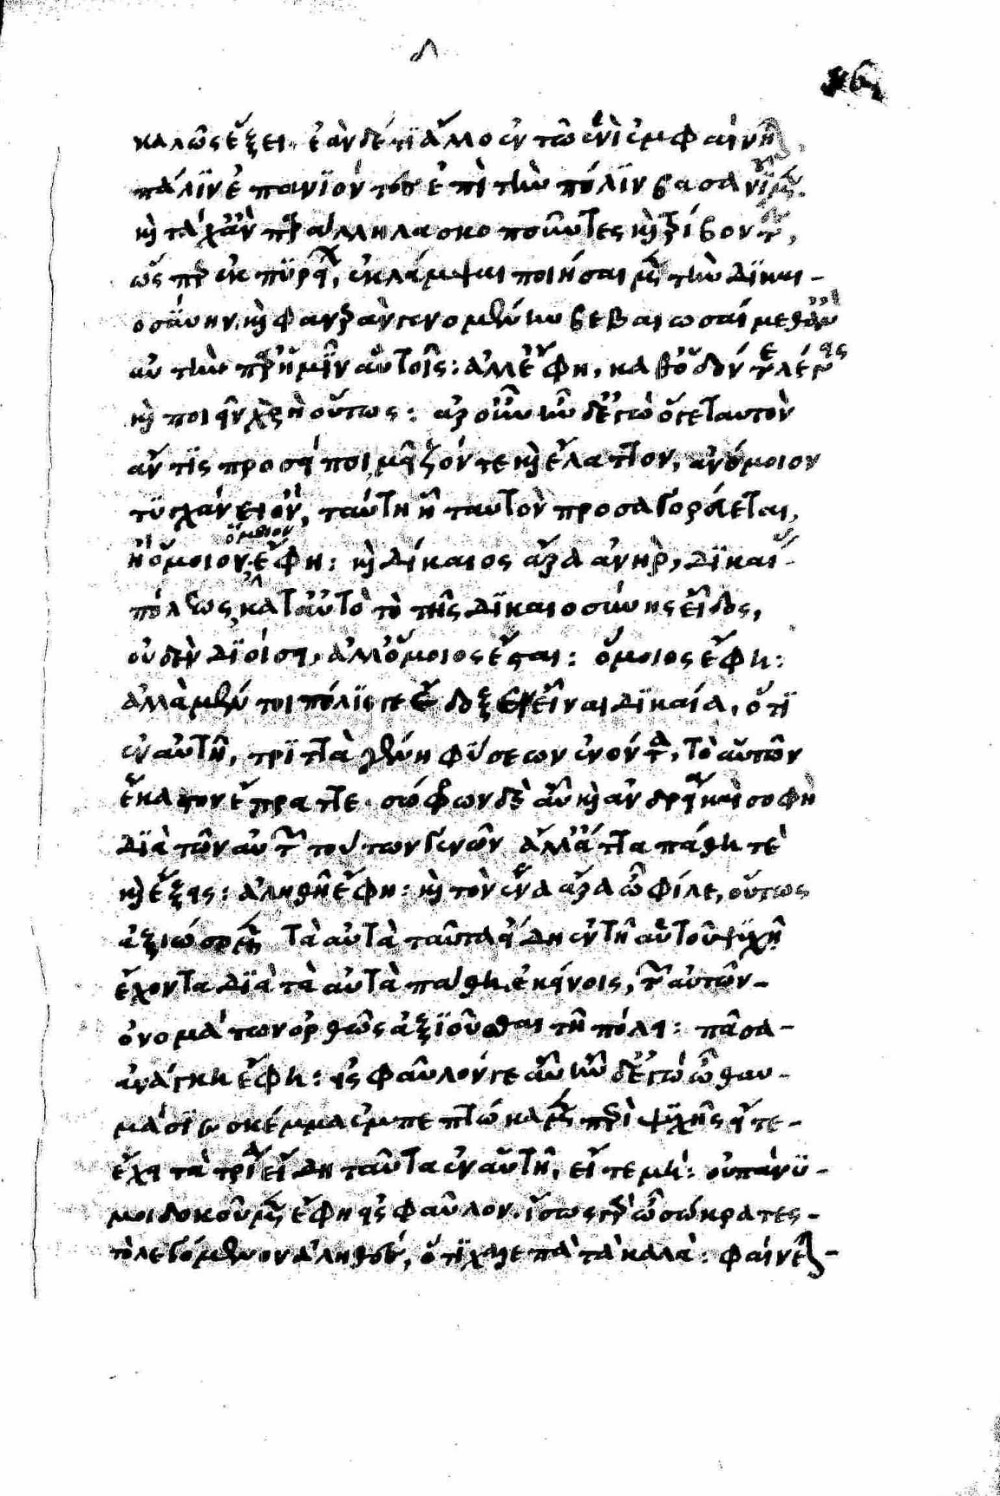 καλῶς ἕξει· ἐὰν δέ τι ἄλλο ἐν τῶ ἑνὶ ἐμφαίνη
πάλιν ἐπανιόντες ἐπὶ τὴν πόλιν βασανιοῦμεν.
καὶ τάχ' ἂν παρ' ἄλληλα σκοποῦντες καὶ τρίβοντες,
ὡς περ ἐκ πυρείων, ἐκλάμψαι ποιήσαιμεν τὴν δικαι-
οσύνην. καὶ φανερὰν γενομένην βεβαιωσαίμεθ' ἂν
αὐτὴν παρ' ἡμῖν αὐτοῖς: ἀλλ' ἔφη, καθ' ὁδόν τε λέγεις
καὶ ποιεῖν χρὴ οὕτως: ἆρ' οὖν ἦν δ' ἐγὼ ὅ γε ταυτὸν
ἄν τις προσείποι μεῖζόν τε καὶ ἔλαττον, ἀνόμοιον
τυγχάνει ὂν, ταύτη ἧ ταυτὸν προσαγορεύεται,
ἢ ὅμοιον: ὅμοιον ἔφη: καὶ δίκαιος ἄρα ἀνὴρ, δικαίας
πόλεως, κατ' αὐτὸ τὸ τῆς δικαιοσύνης εἶδος,
οὐδὲν διοίσει, ἀλλ' ὅμοιος ἔσται: ὅμοιος ἔφη:
ἀλλὰ μέντοι πόλις γε ἔδοξεν εἶναι δικαία, ὅτι
ἐν αὐτῆ, τριττὰ γένη φύσεων ἐνόντα, τὸ αὑτῶν
ἕκαστον ἔπραττε· σώφρων δὲ αὖ καὶ ἀνδρεία καὶ σοφὴ
διὰ τῶν αὐτῶν τούτων γενῶν ἄλλ' ἄττα πάθη τὲ
καὶ ἕξεις: ἀληθῆ ἔφη: καὶ τὸν ἕνα ἄρα ὦ φίλε, οὕτως
ἀξιώσομεν τὰ αὐτὰ ταῦτα εἴδη ἐν τῆ αὑτοῦ ψυχῆ
ἔχοντα διὰ τὰ αὐτὰ πάθη ἐκείνοις, τῶν αὐτῶν-
ὀνομάτων ὀρθῶς ἀξιοῦσθαι τῆ πόλει: πᾶσα-
ἀνάγκη ἔφη: εἰς φαῦλόν γε αὖ ἦν δ' ἐγώ ὦ θαυ-
μάσιε σκέμμα ἐμπεπτώκαμεν περὶ ψυχῆς εἴτε-
ἔχει τὰ τρία εἴδη ταῦτα ἐν αὑτῆ, εἴτε μή: οὐ πάνυ-
μοι δοκοῦμεν ἔφη εἰς φαῦλον. ἴσως γὰρ ὦ σώκρατες-
τὸ λεγόμενον ἀληθές, ὅτι χαλεπὰ τὰ καλὰ: φαίνεται-